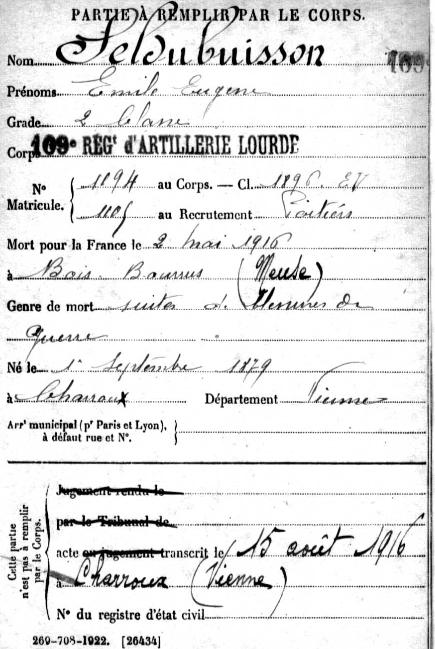 PARTIE À REMPLIR PAR LE CORPS.
Nom Seldubuisson
109
Prénoms Emile Eugène
Grade 2 Classe
Corps 109e RÉGt d'ARTILLERIE LOURDE
No Matricule. 1194 au Corps. — Cl. 1896. EV
1105 au Recrutement Poitiers
Mort pour la France le 2 mai 1916
à Bois Bourrus (Meuse)
Genre de mort suites de blessures de
guerre
Né le 1r Septembre 1879
à Charroux Département Vienne
Arrt municipal (pr Paris et Lyon),
à défaut rue et No.
Cette partie
n'est pas à remplir
par le Corps.
Jugement rendu le
par le Tribunal de
acte ou jugement transcrit le 15 août 1916
à Charroux (Vienne)
No du registre d'état civil
269-708-1922. [26434]